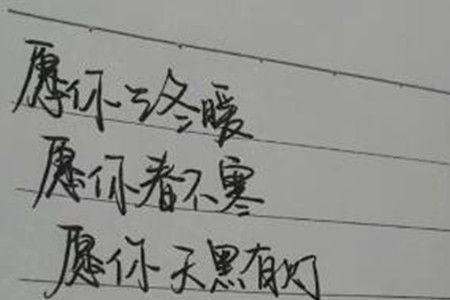 愿你三冬暖
愿你春不寒
愿你天黑有灯